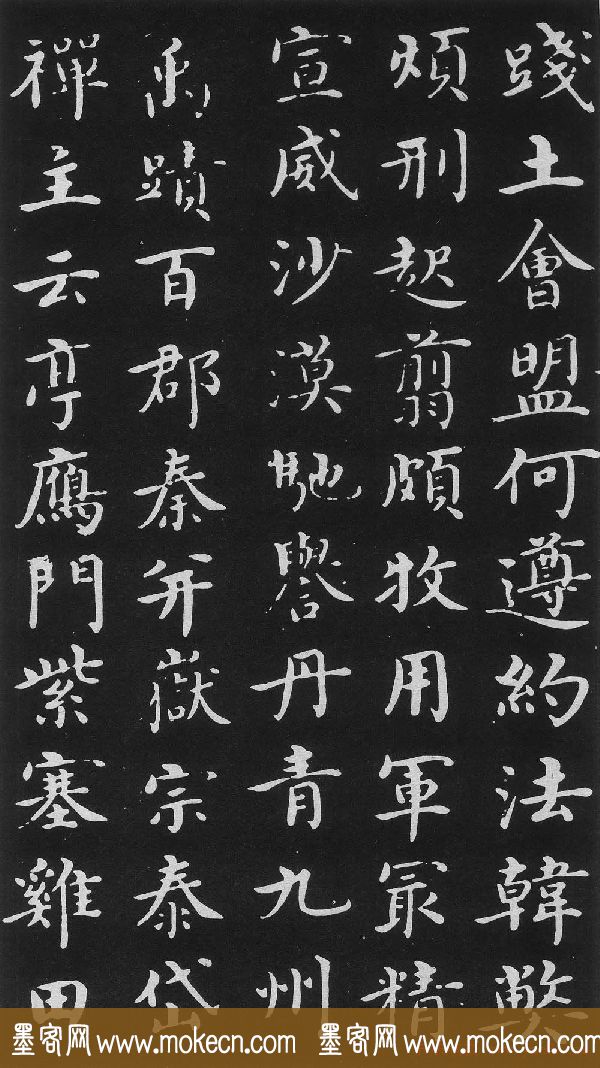 踐土會盟何遵約法韓弊
煩刑起翦頗牧用軍最精
宣威沙漠馳譽丹青九州
禹蹟百郡秦并嶽宗泰岱
禪主云亭鴈門紫塞雞田
墨客网 www.mokecn.com 墨客网 www.mokecn.com